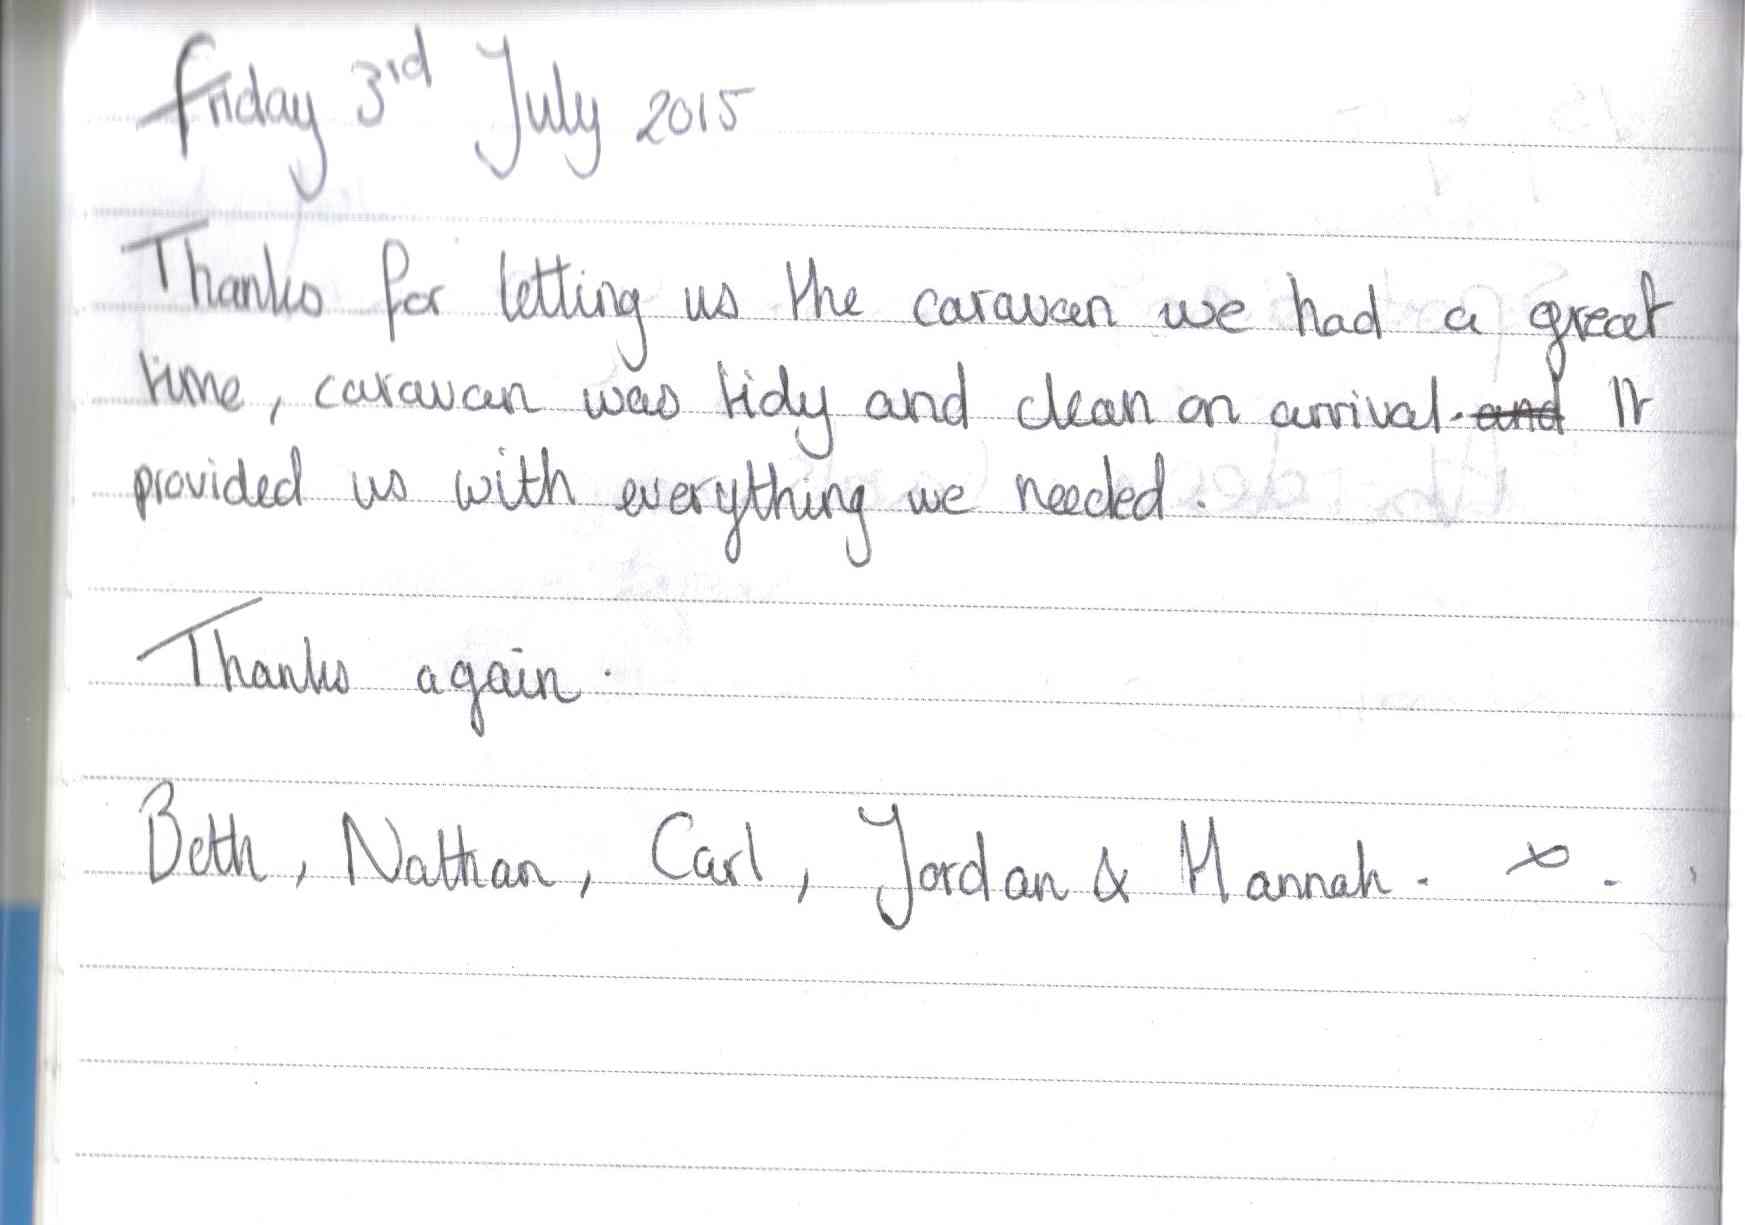 Friday 3rd July 2015
Thanks for letting us the caravan we had a great
time, caravan was tidy and clean on arrival. and It
provided us with everything we needed.
Thanks again.
Beth, Nathan, Carl, Jordan & Hannah. x.